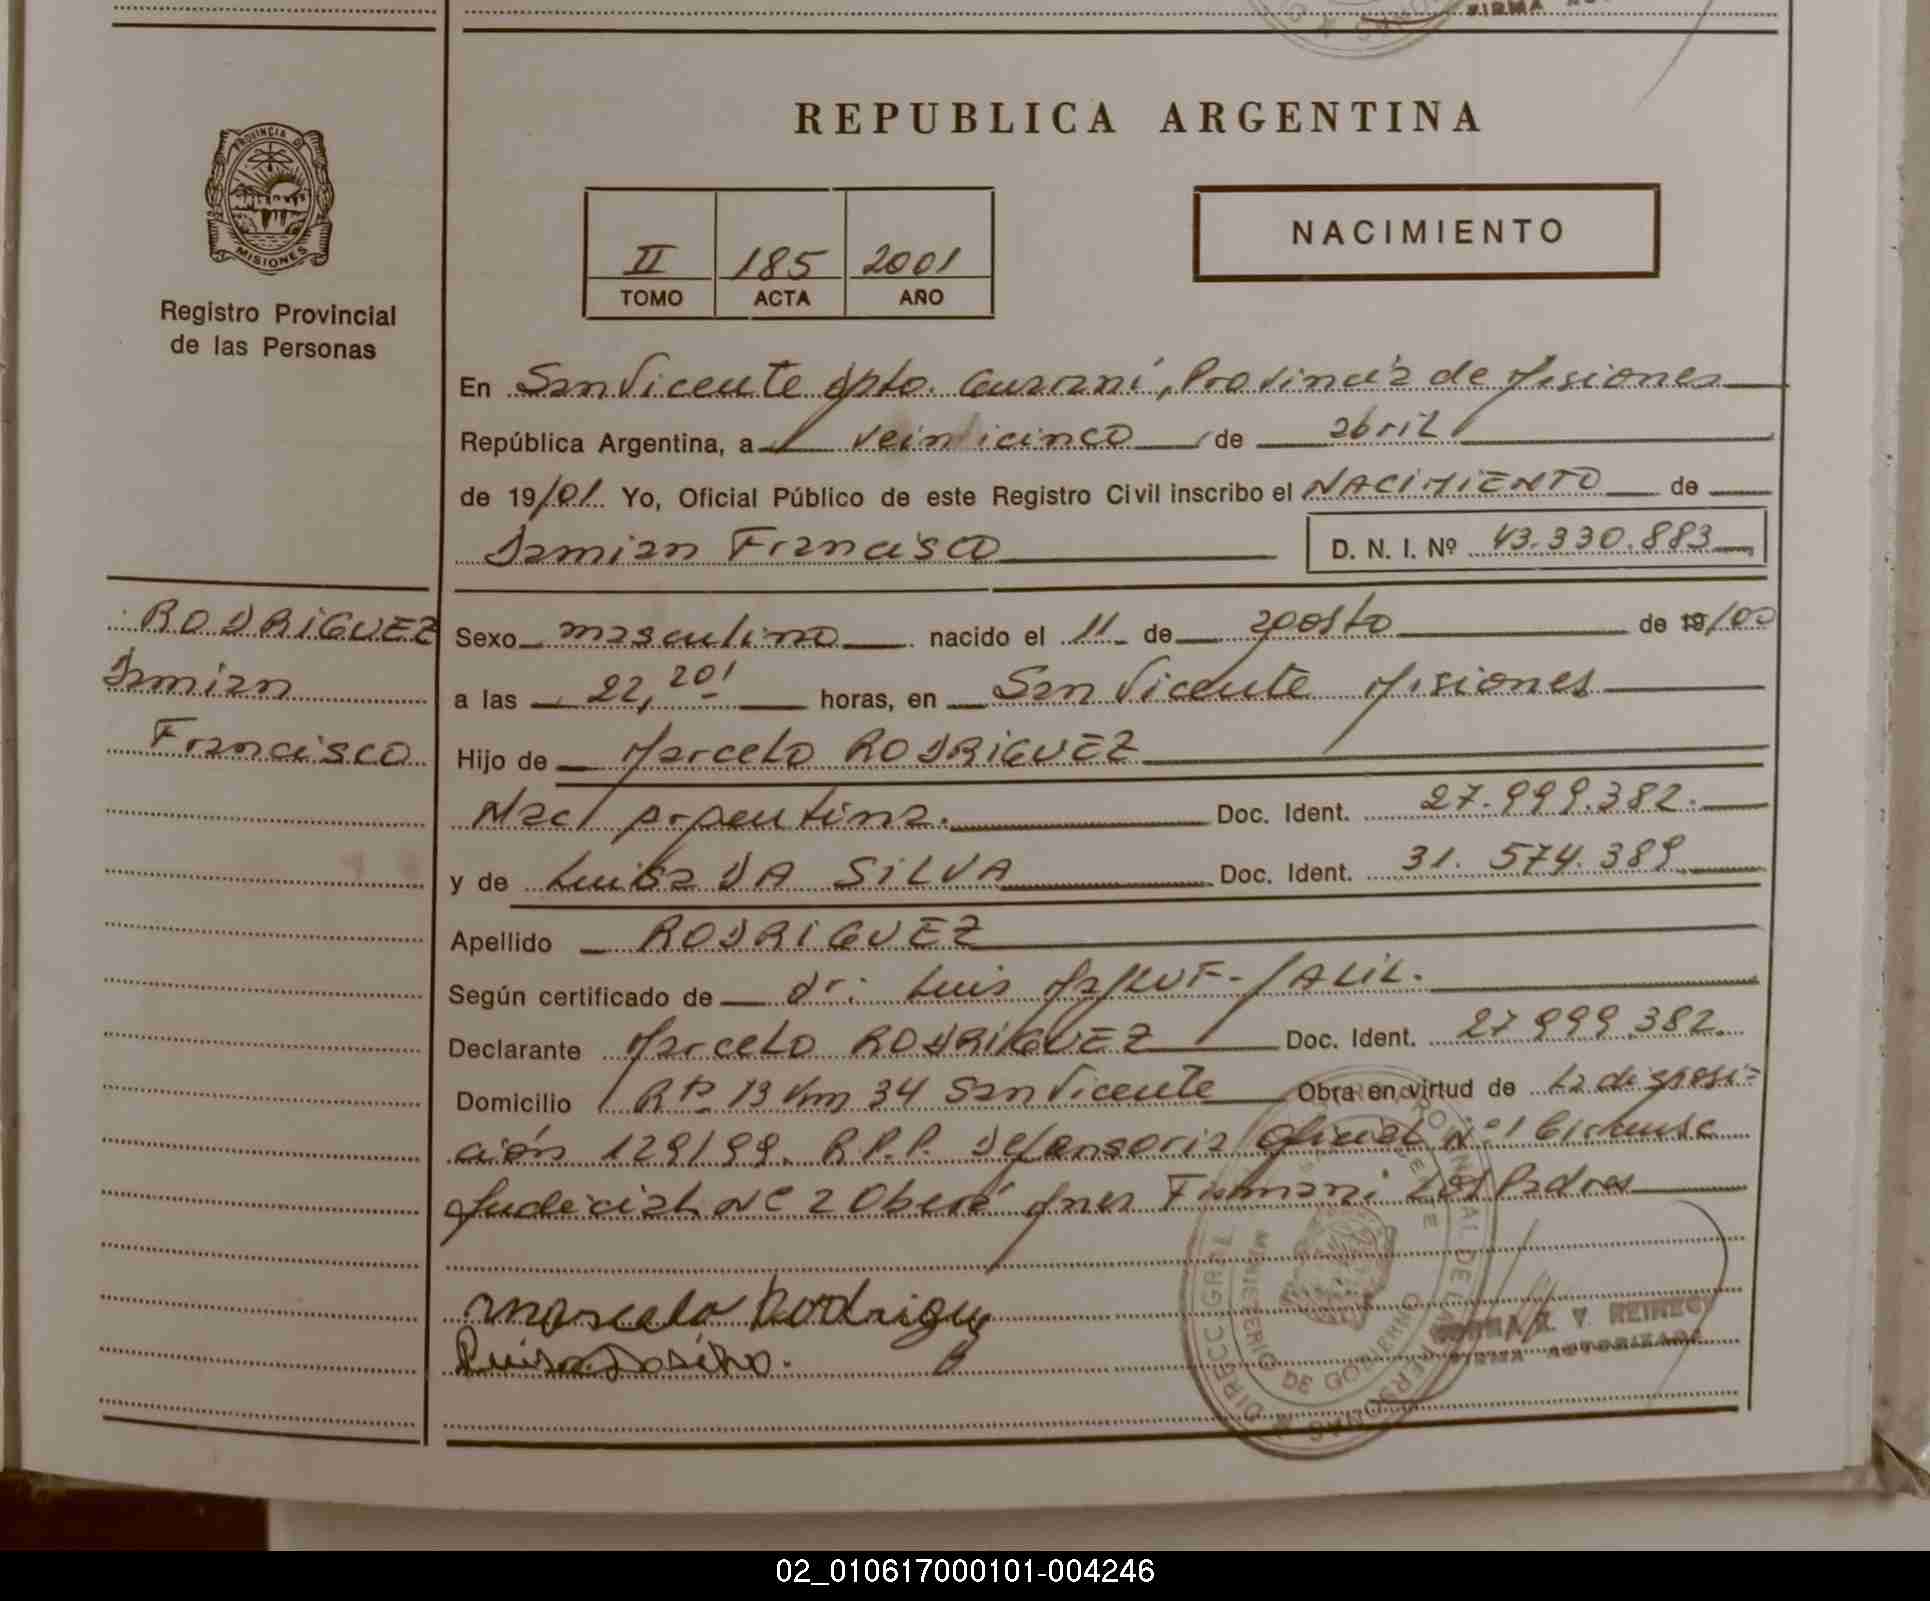 REPUBLICA ARGENTINA
PROVINCIA DE
MISIONES
Registro Provincial
de las Personas
II 185 2001
TOMO ACTA AÑO
NACIMIENTO
En San Vicente dpto. Guaraní, Provincia de Misiones
República Argentina, a veinticinco de abril
de 19/01. Yo, Oficial Público de este Registro Civil inscribo el NACIMIENTO de
Damian Francisco D. N. I. Nº 43.330.883
RODRIGUEZ
Damian
Francisco
Sexo masculino nacido el 11 de agosto de 19/00
a las 22,20' horas, en San Vicente Misiones
Hijo de Marcelo RODRIGUEZ
Nac argentina. Doc. Ident. 27.999.382.
y de Luisa DA SILVA Doc. Ident. 31.574.389
Apellido RODRIGUEZ
Según certificado de dr: Luis
Declarante Marcelo RODRIGUEZ Doc. Ident. 27 999.382.
Domicilio RP. 13 Km 34 San Vicente Obra en virtud de La disposi-
ción 129/99. R.P.P. Defensoria Oficial Nº1
Judicial Nº 2 Oberá Firman: Los Padres
Marcelo Rodrigue
Luisa Da Silva.
FIRMA AUTORIZADA
DIRECC GRAL PROVINCIAL DE LAS PERSONAS
MINISTERIO DE GOBIERNO
02_010617000101-004246